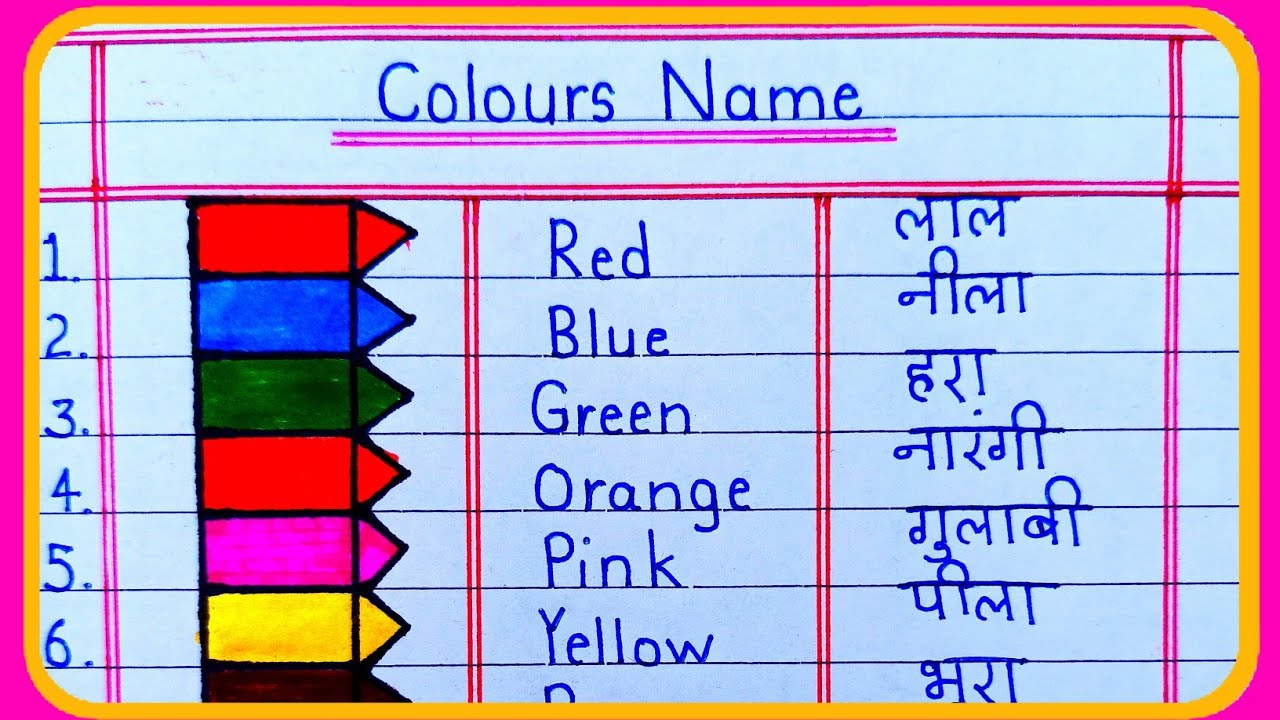 Colours Name
1. Red लाल
2. Blue नीला
3. Green हरा
4. Orange नारंगी
5. Pink गुलाबी
6. Yellow पीला
भूरा